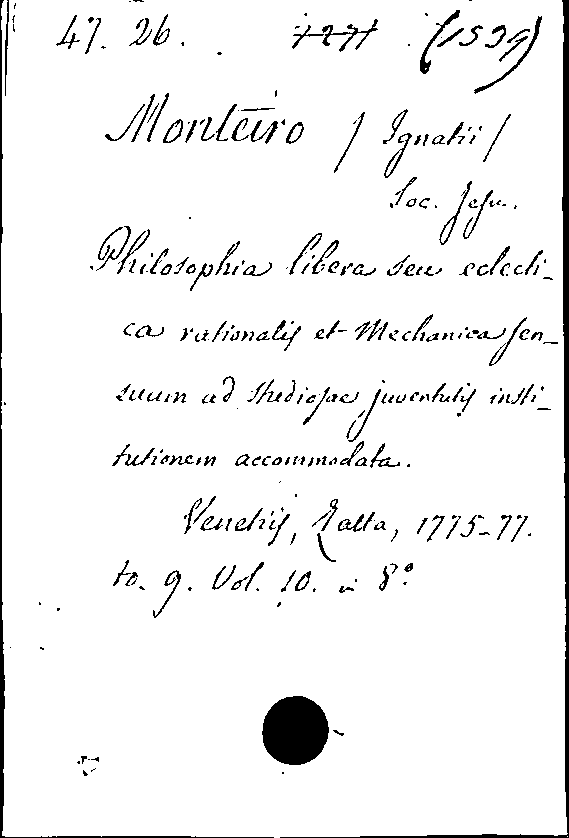 47. 26. 7271 (1539)
Monteiro / Ignatii /
Soc. Jesu.
Philosophia libera seu eclecti-
ca rationalis et Mechanica sen-
suum ad studiosae juventutis insti-
tutionem accommodata.
Venetiis, Zatta, 1775-77.
to. 9. Vol. 10. in 8º